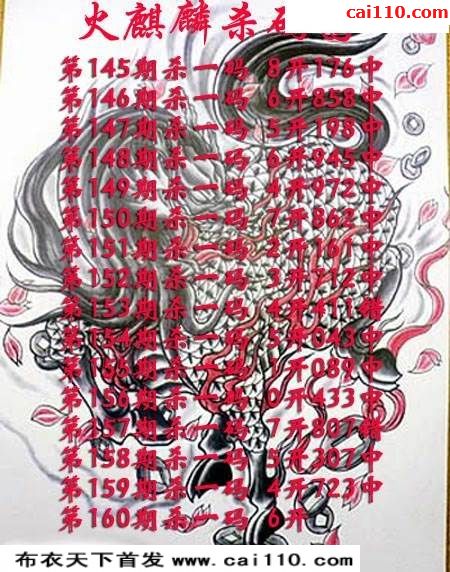 http://www.
cai110.com/
火麒麟杀码
第145期杀一码 8开176中
第146期杀一码 6开858中
第147期杀一码 5开198中
第148期杀一码 6开945中
第149期杀一码 4开972中
第150期杀一码 7开862中
第151期杀一码 2开161中
第152期杀一码 3开712中
第153期杀一码 4开411错
第154期杀一码 5开043中
第155期杀一码 1开089中
第156期杀一码 0开433中
第157期杀一码 7开807错
第158期杀一码 5开307中
第159期杀一码 4开723中
第160期杀一码 6开
布衣天下首发 www.cai110.com